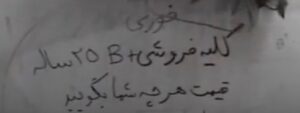 فوری
کلیه فروشی B+ ۲۵ ساله
قیمت هرچه شما بگویید